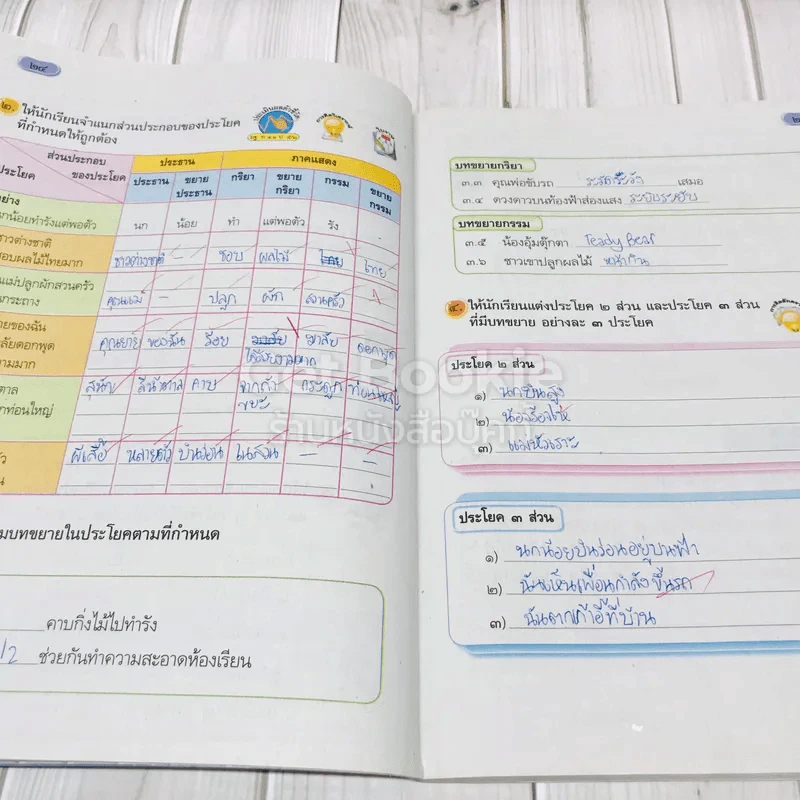 ๒๔
๒. ให้นักเรียนจำแนกส่วนประกอบของประโยค
ที่กำหนดให้ถูกต้อง
ส่วนประกอบ
ของประโยค
ประโยค
ประธาน
ภาคแสดง
ประธาน ขยายประธาน กริยา ขยายกริยา กรรม ขยายกรรม
นกน้อยทำรังแต่พอตัว นก น้อย ทำ แต่พอตัว รัง -
ชาวต่างชาติ
ชอบผลไม้ไทยมาก ชาวต่างชาติ - ชอบ ผลไม้ ไทย
แม่ปลูกผักสวนครัว
กระถาง คุณแม่ - ปลูก ผัก สวนครัว
ยายของฉัน
ลัยดอกพุด
งามมาก คุณยาย ของฉัน ร้อย ได้สวยงามมาก มาลัย ดอกพุด
ตาล
กท่อนใหญ่ สุนัข สีน้ำตาล คาบ จากถังขยะ กระดูก ท่อนใหญ่
ผีเสื้อ หลายตัว บินว่อน ในสวน - -
มบทขยายในประโยคตามที่กำหนด
คาบกิ่งไม้ไปทำรัง
/2 ช่วยกันทำความสะอาดห้องเรียน
บทขยายกริยา
๓.๓ คุณพ่อขับรถ ระมัดระวัง เสมอ
๓.๔ ดวงดาวบนท้องฟ้าส่องแสง ระยิบระยับ
บทขยายกรรม
๓.๕ น้องอุ้มตุ๊กตา Teady Bear
๓.๖ ชาวเขาปลูกผลไม้ หน้ากิน
๔. ให้นักเรียนแต่งประโยค ๒ ส่วน และประโยค ๓ ส่วน
ที่มีบทขยาย อย่างละ ๓ ประโยค
ประโยค ๒ ส่วน
๑) นกบินสูง
๒) น้องร้องไห้
๓) แม่หัวเราะ
ประโยค ๓ ส่วน
๑) นกน้อยบินร่อนอยู่บนฟ้า
๒) ฉันเห็นเพื่อนกำลังขึ้นรถ
๓) ฉันตากเก้าอี้ที่บ้าน
Get Bookie
ร้านหนังสือบุ๊คกี้